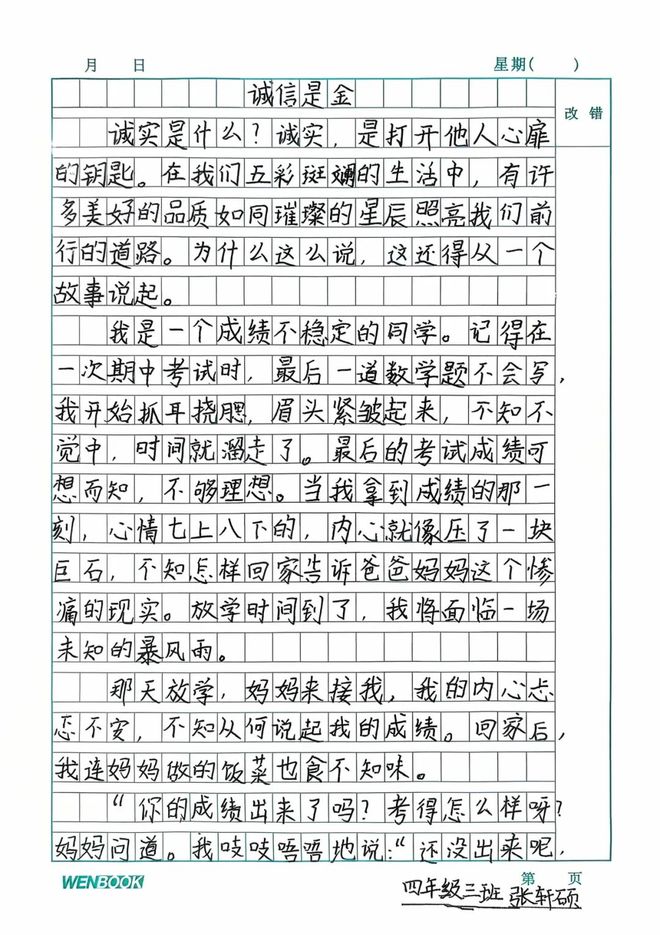 月 日 星期( )
诚信是金
改 错
诚实是什么?诚实,是打开他人心扉
的钥匙。在我们五彩斑斓的生活中,有许
多美好的品质如同璀璨的星辰照亮我们前
行的道路。为什么这么说,这还得从一个
故事说起。
我是一个成绩不稳定的同学。记得在
一次期中考试时,最后一道数学题不会写,
我开始抓耳挠腮,眉头紧皱起来,不知不
觉中,时间就溜走了。最后的考试成绩可
想而知,不够理想。当我拿到成绩的那一
刻,心情七上八下的,内心就像压了一块
巨石,不知怎样回家告诉爸爸妈妈这个惨
痛的现实。放学时间到了,我将面临一场
未知的暴风雨。
那天放学,妈妈来接我,我的内心忐
忑不安,不知从何说起我的成绩。回家后,
我连妈妈做的饭菜也食不知味。
“你的成绩出来了吗?考得怎么样呀?
妈妈问道。我吱吱唔唔地说:“还没出来呢,
WENBOOK 第 页
四年级三班 张轩硕